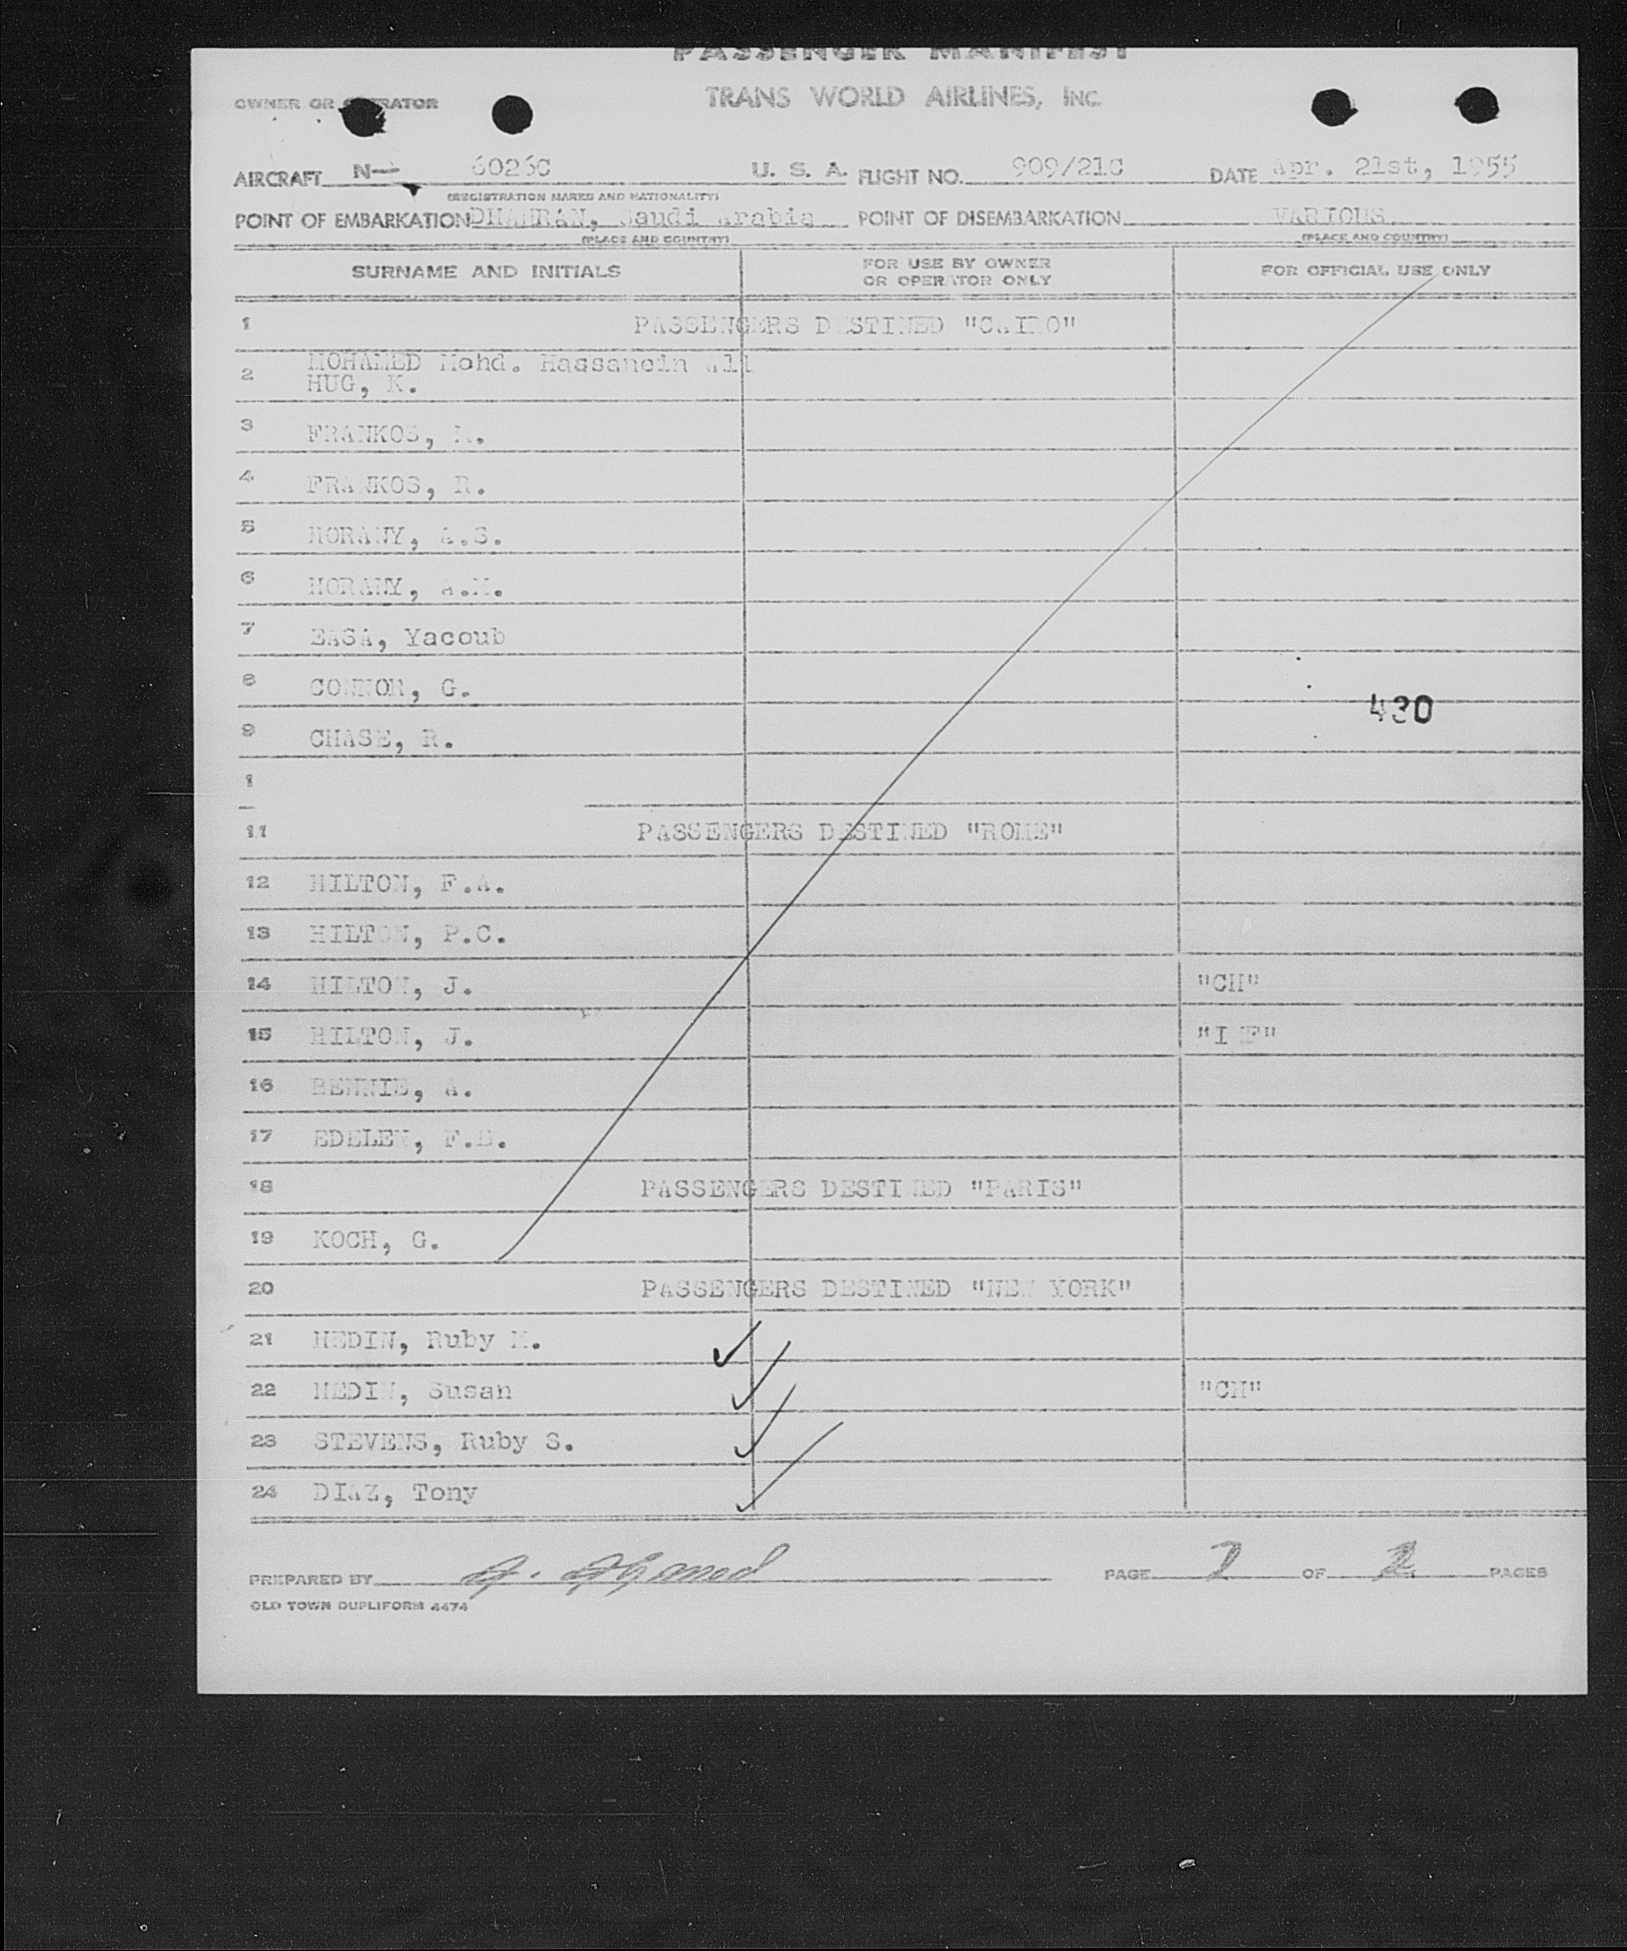 PASSENGER MANIFEST
TRANS WORLD AIRLINES, INC.
OWNER OR OPERATOR
AIRCRAFT N- 6026C U. S. A. FLIGHT NO. 909/21C DATE Apr. 21st, 1955
(REGISTRATION MARKS AND NATIONALITY)
POINT OF EMBARKATION DHAHRAN, Saudi Arabia POINT OF DISEMBARKATION VARIOUS
(PLACE AND COUNTRY) (PLACE AND COUNTRY)
SURNAME AND INITIALS FOR USE BY OWNER OR OPERATOR ONLY FOR OFFICIAL USE ONLY
1 PASSENGERS DESTINED "CAIRO"
MOHAMED Mohd. Hassanein Ali
2 HUG, K.
3 FRANKOS,
4 FRANKOS, R.
5 MORANY, A.S.
6 MORANY, A.M.
7 EASA, Yacoub
8 CONNOR, G.
430
9 CHASE, R.
1
11 PASSENGERS DESTINED "ROME"
12 HILTON, F.A.
13 HILTON, P.C.
14 HILTON, J. "CH"
15 HILTON, J. "INF"
16 BENNIE, A.
17 EDELEN, F.E.
18 PASSENGERS DESTINED "PARIS"
19 KOCH, G.
20 PASSENGERS DESTINED "NEW YORK"
21 HEDIN, Ruby M.
22 HEDIN, Susan "CH"
23 STEVENS, Ruby S.
24 DIAZ, Tony
PREPARED BY PAGE 2 OF 2 PAGES
OLD TOWN DUPLIFORM 4474